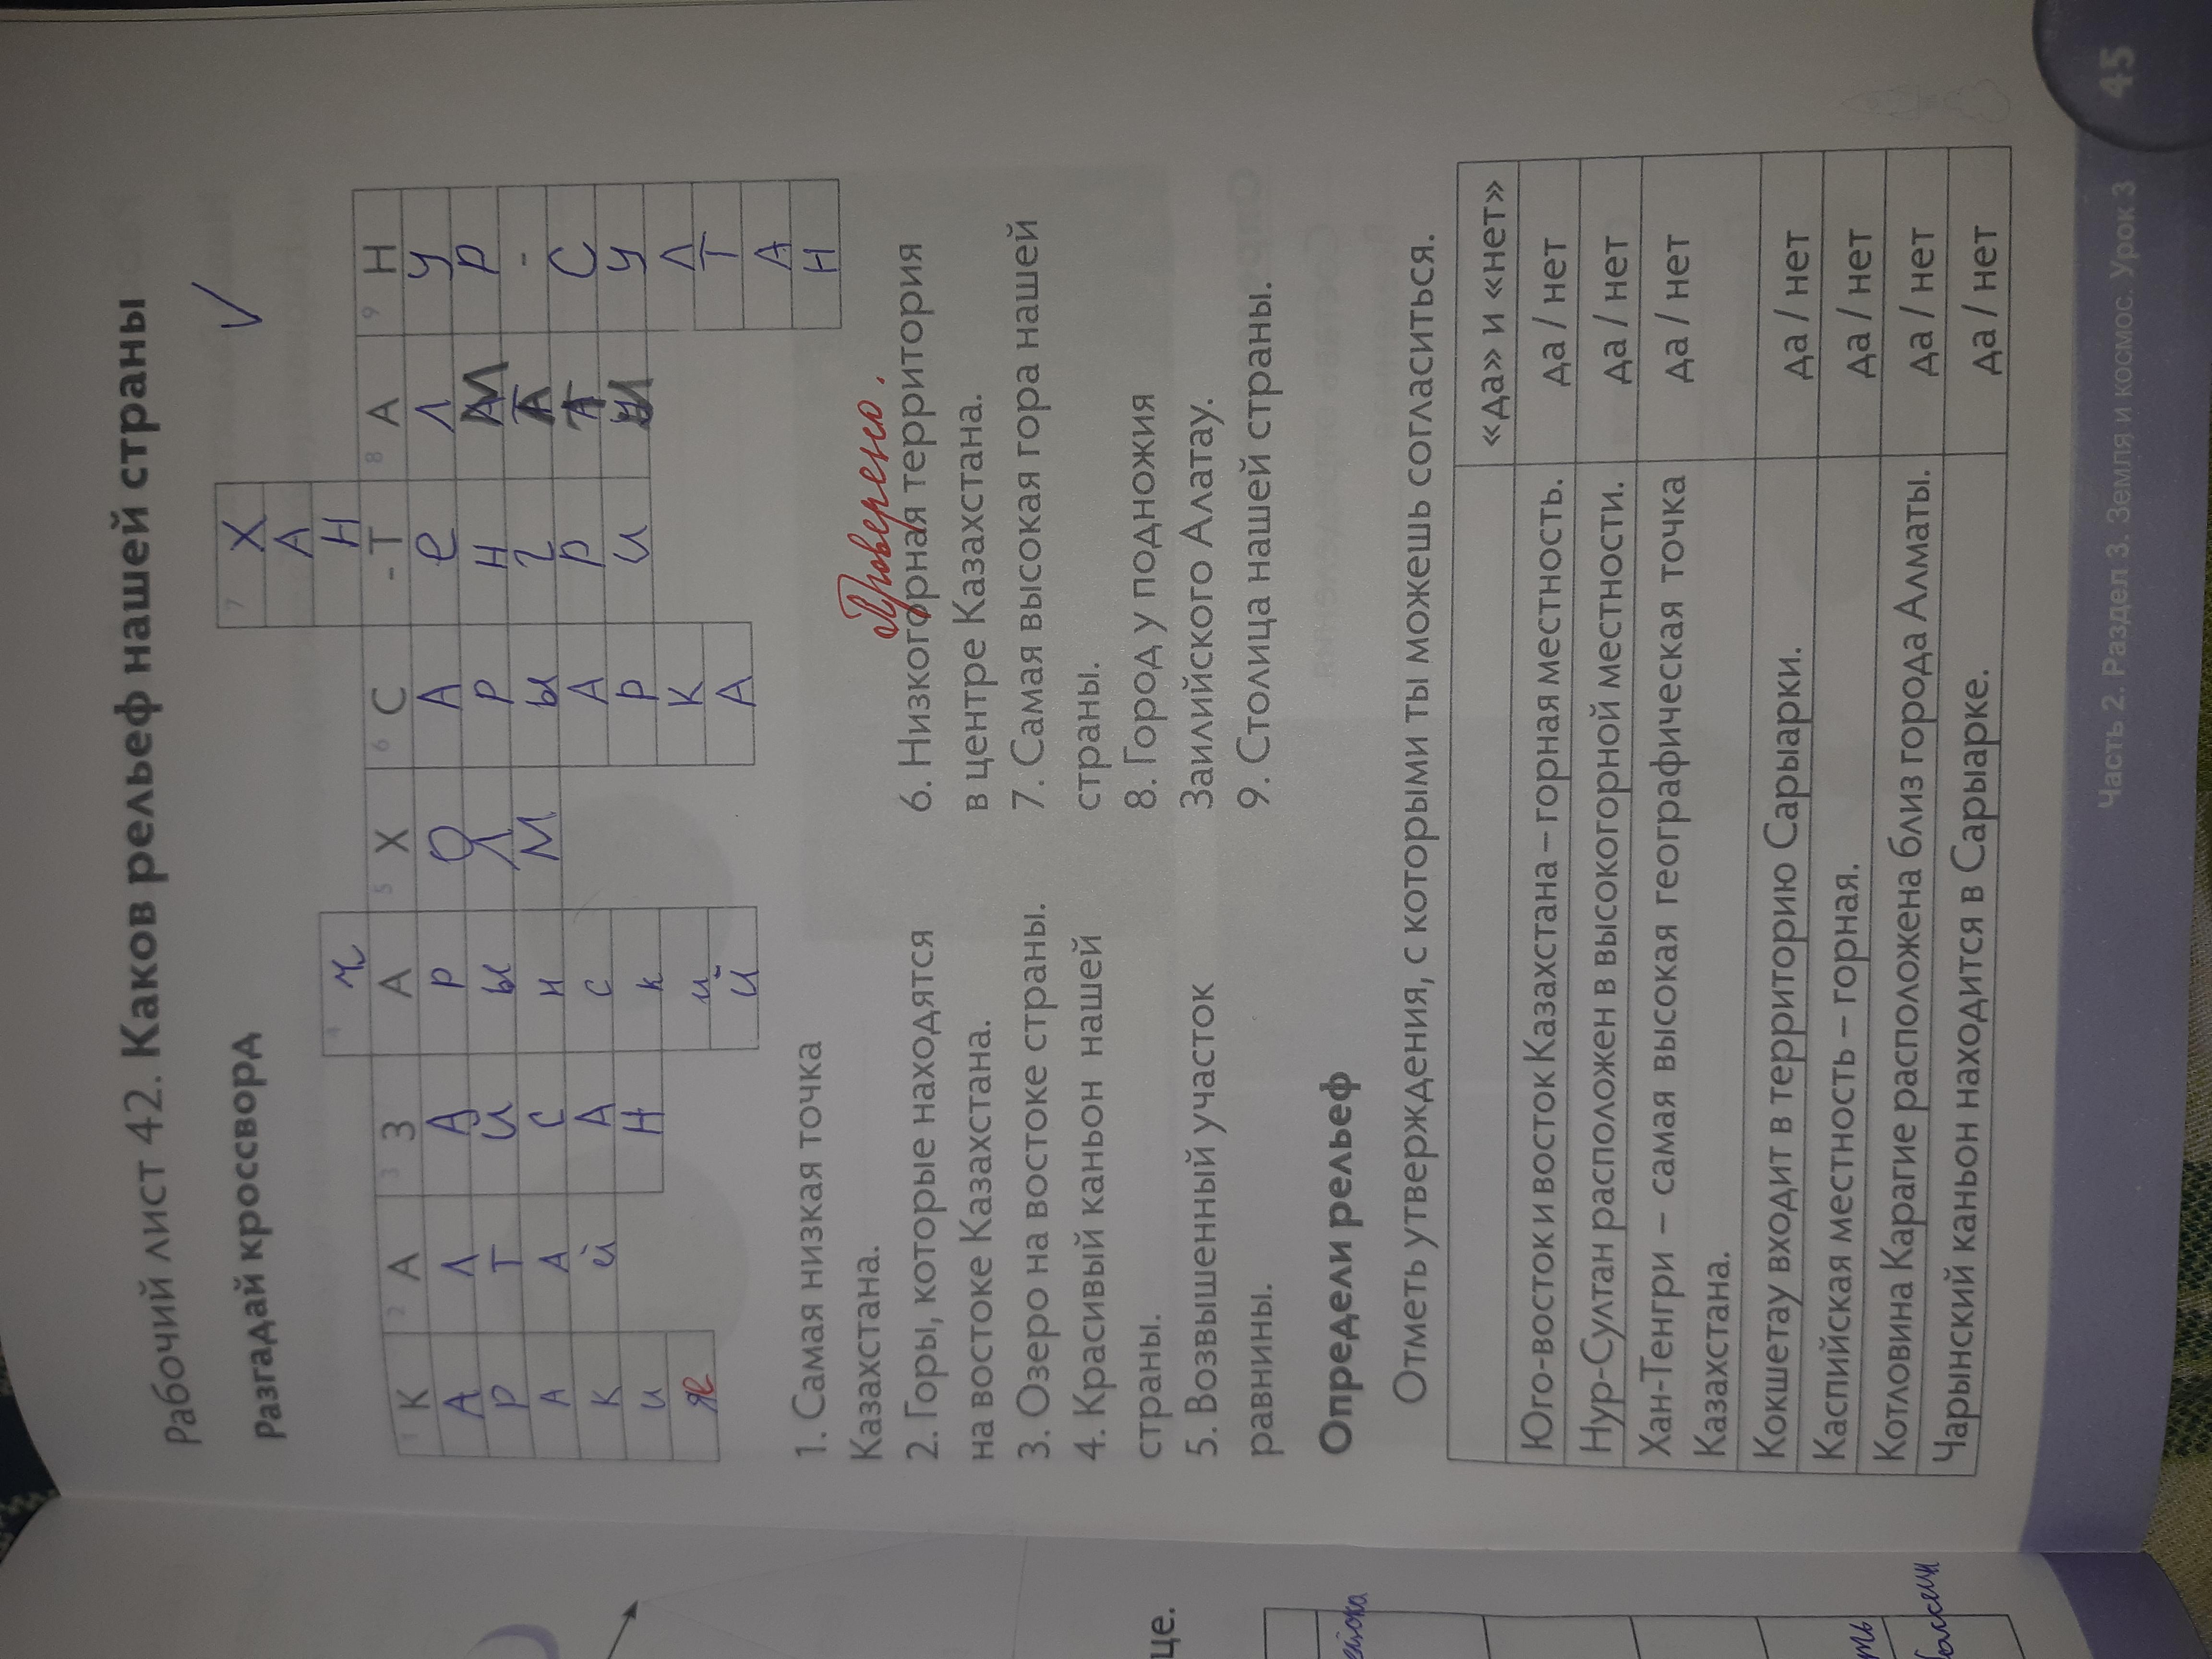 Рабочий лист 42. Каков рельеф нашей страны
Разгадай кроссворд
V
7 Х
А
4 Ч Н
1 К 2 А 3 З А 5 Х 6 С - Т 8 А 9 Н
А Л А Р О А е л у
Р Т Й Ы Л Р н М р
А А С Н М Ы г А -
К Й А С А Р Т С
И Н К Р И Ы У
Я И К Л
Й А Т
А
Н
Проверено.
1. Самая низкая точка
Казахстана.
2. Горы, которые находятся
на востоке Казахстана.
3. Озеро на востоке страны.
4. Красивый каньон нашей
страны.
5. Возвышенный участок
равнины.
6. Низкогорная территория
в центре Казахстана.
7. Самая высокая гора нашей
страны.
8. Город у подножия
Заилийского Алатау.
9. Столица нашей страны.
Определи рельеф
Отметь утверждения, с которыми ты можешь согласиться.
«да» и «нет»
Юго-восток и восток Казахстана – горная местность. да / нет
Нур-Султан расположен в высокогорной местности. да / нет
Хан-Тенгри – самая высокая географическая точка да / нет
Казахстана.
Кокшетау входит в территорию Сарыарки. да / нет
Каспийская местность – горная. да / нет
Котловина Карагие расположена близ города Алматы. да / нет
Чарынский каньон находится в Сарыарке. да / нет
Часть 2. Раздел 3. Земля и космос. Урок 3 45
це.
ть